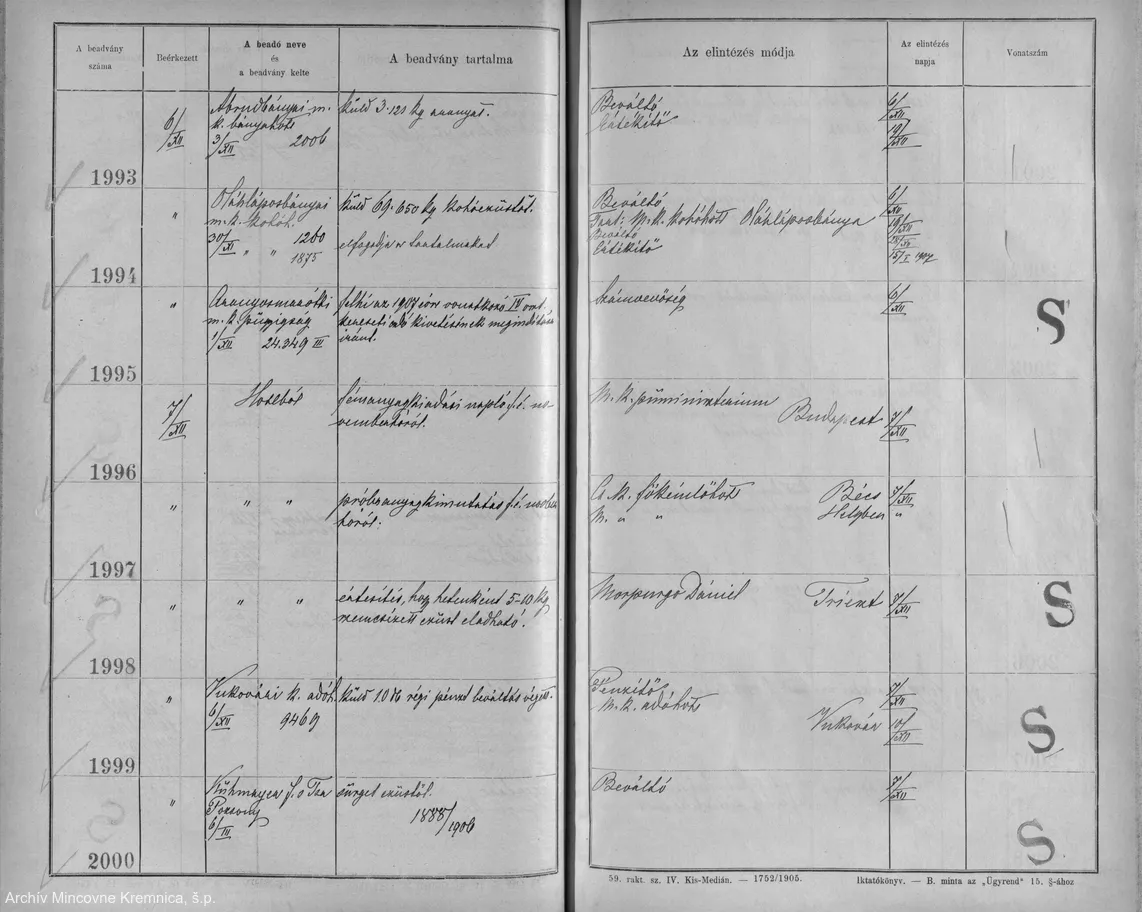 A beadvány száma
Beérkezett
A beadó neve
és
a beadvány kelte
A beadvány tartalma
Az elintézés módja
Az elintézés napja
Vonatszám
6/XII
Abrudbányai m.
k. bányahts
3/XII 2006
küld 3.120 kg aranyat.
Beváltó
Értékítő
6/XII
19/XII
1993
"
Oláhláposbányai
m. k. kohóh.
30/XI 1260
" " 1875
küld 69.650 kg kohóezüstöt.
elfogadja a tartalmakat
Beváltó
Tart: M. k. kohóhts Oláhláposbánya
Beváltó
Értékítő
6/XII
15/I 1907
1994
"
Aranyosmaróthi
m. k. püigzság
1/XII 24.349 III
felhí az 1907 évre vonatkozó IV oszt.
kereseti adó kivetésének megindítása
iránt.
Számvevőség
6/XII
S
1995
7/XII
Hivtból
fémanyagkiadási napló f. é. no-
vemberhóról.
M. k. püministerium
Budapest
7/XII
1996
"
" "
próbaanyagkimutatás f. é. novber
hóról.
Cs. k. főkémlőhts Bécs
M. " " Helyben
7/XII
"
1997
"
" "
értesítés, hogy hetenként 5-10 kg
nemesített ezüst eladható.
Morpurgo Dániel Triest
7/XII
S
1998
"
Vukovári k. adóh.
6/XII 9469
küld 10 db régi pénzt beváltás végett.
Pénzítő
M. k. adóhts
Vukovár
7/XII
10/XII
S
1999
"
Kühmayer f. s Tsa
Pozsony
6/XII
sürget ezüstöt.
1888/1906
Beváltó
7/XII
S
2000
59. rakt. sz. IV. Kis-Medián. — 1752/1905.
Iktatókönyv. — B. minta az „Ügyrend" 15. §-ához
Archív Mincovne Kremnica, š.p.